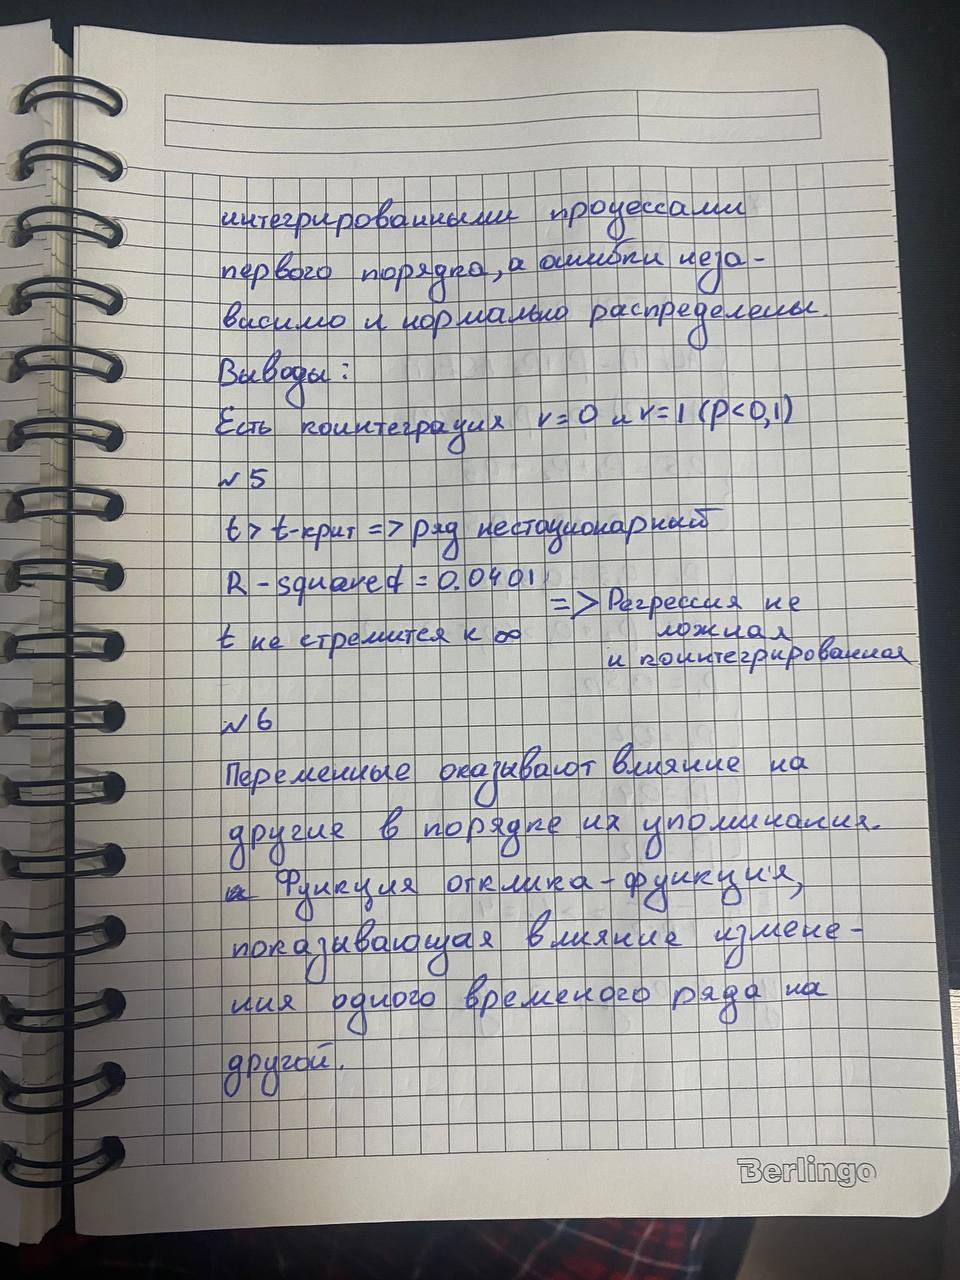 интегрированными процессами
первого порядка, а ошибки неза-
висимо и нормально распределены.
Выводы:
Есть коинтеграция r=0 и r=1 (P<0,1)
№5
t > t-крит => ряд нестационарный
R-squared = 0.0401
t не стремится к ∞
=> Регрессия не
ложная
и коинтегрированная
№6
Переменные оказывают влияние на
другие в порядке их упоминания.
Функция отклика-функция,
показывающая влияние измене-
ния одного временого ряда на
другой.
Berlingo